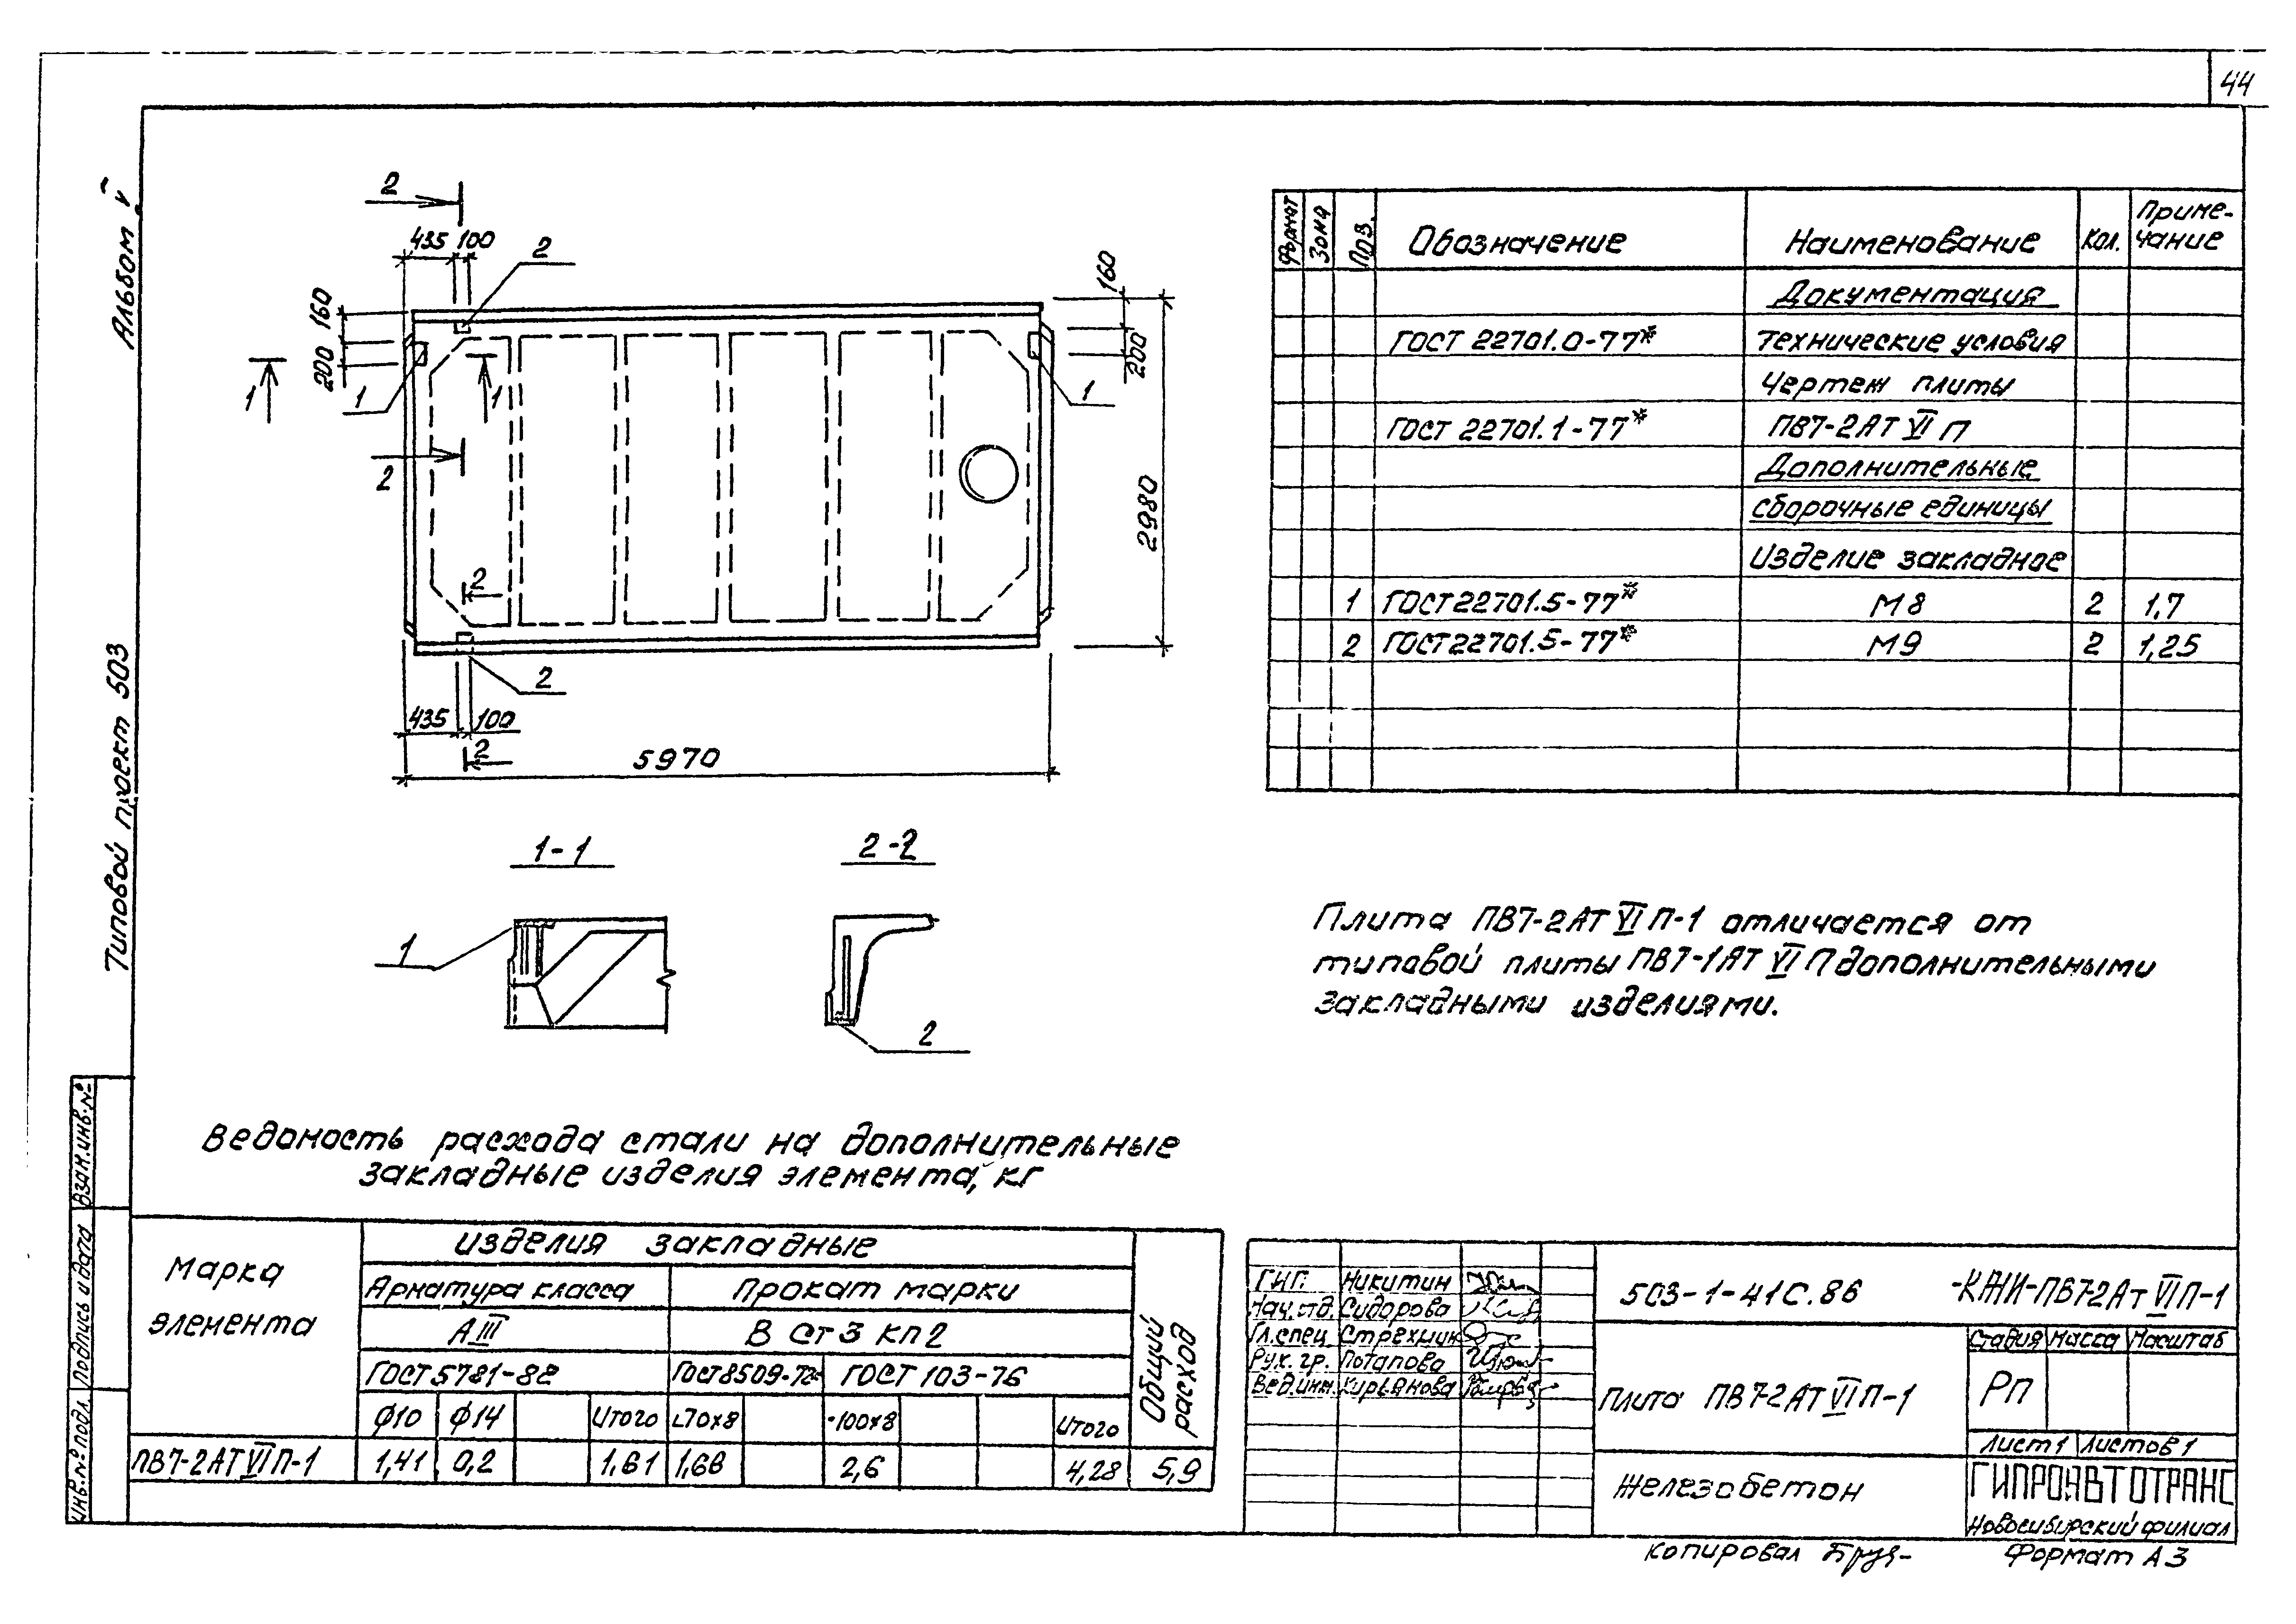 44
Альбом V
Типовой проект 503
2
435 100
2
160
200
1
1
1
2
2
2
435 100
2
5970
160
200
1
2980
1-1
1
2-2
2
Формат Зона Поз. Обозначение Наименование Кол. Приме-
чание
Документация
ГОСТ 22701.0-77* Технические условия
Чертеж плиты
ГОСТ 22701.1-77* ПВ7-2АТ VI П
Дополнительные
сборочные единицы
Изделие закладное
1 ГОСТ 22701.5-77* М8 2 1,7
2 ГОСТ 22701.5-77* М9 2 1,25
Плита ПВ7-2АТ VI П-1 отличается от
типовой плиты ПВ7-1АТ VI П дополнительными
закладными изделиями.
Ведомость расхода стали на дополнительные
закладные изделия элемента, кг
Марка
элемента
Изделия закладные
Общий
расход
Арматура класса Прокат марки
АIII В Ст 3 кп 2
ГОСТ 5781-82 ГОСТ 8509-72* ГОСТ 103-76
Ф10 Ф14 Итого L70х8 -100х8 Итого
ПВ7-2АТ VI П-1 1,41 0,2 1,61 1,68 2,6 4,28 5,9
ГИП Никитин
Нач.отд. Сидорова
Гл.спец. Стрехмин
Рук. гр. Потапова
Вед.инж. Кирьянова
503-1-41С.86 -КЖИ-ПВ7-2Ат VI П-1
Плита ПВ7-2АТ VI П-1
Стадия Масса Масштаб
РП
Лист 1 Листов 1
Железобетон
ГИПРОАВТОТРАНС
Новосибирский филиал
Копировал
Формат А3
Взам.инв.№
Подпись и дата
Инв.№ подл.